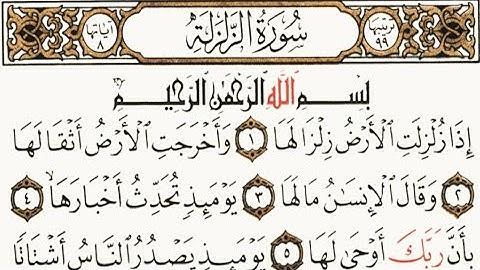 ترتيبها ٩٩ سُورَةُ الزَّلْزَلَةِ آياتها ٨
بِسْمِ اللَّهِ الرَّحْمَٰنِ الرَّحِيمِ
إِذَا زُلْزِلَتِ الْأَرْضُ زِلْزَالَهَا ١ وَأَخْرَجَتِ الْأَرْضُ أَثْقَالَهَا
٢ وَقَالَ الْإِنسَانُ مَا لَهَا ٣ يَوْمَئِذٍ تُحَدِّثُ أَخْبَارَهَا ٤
بِأَنَّ رَبَّكَ أَوْحَىٰ لَهَا ٥ يَوْمَئِذٍ يَصْدُرُ النَّاسُ أَشْتَاتًا